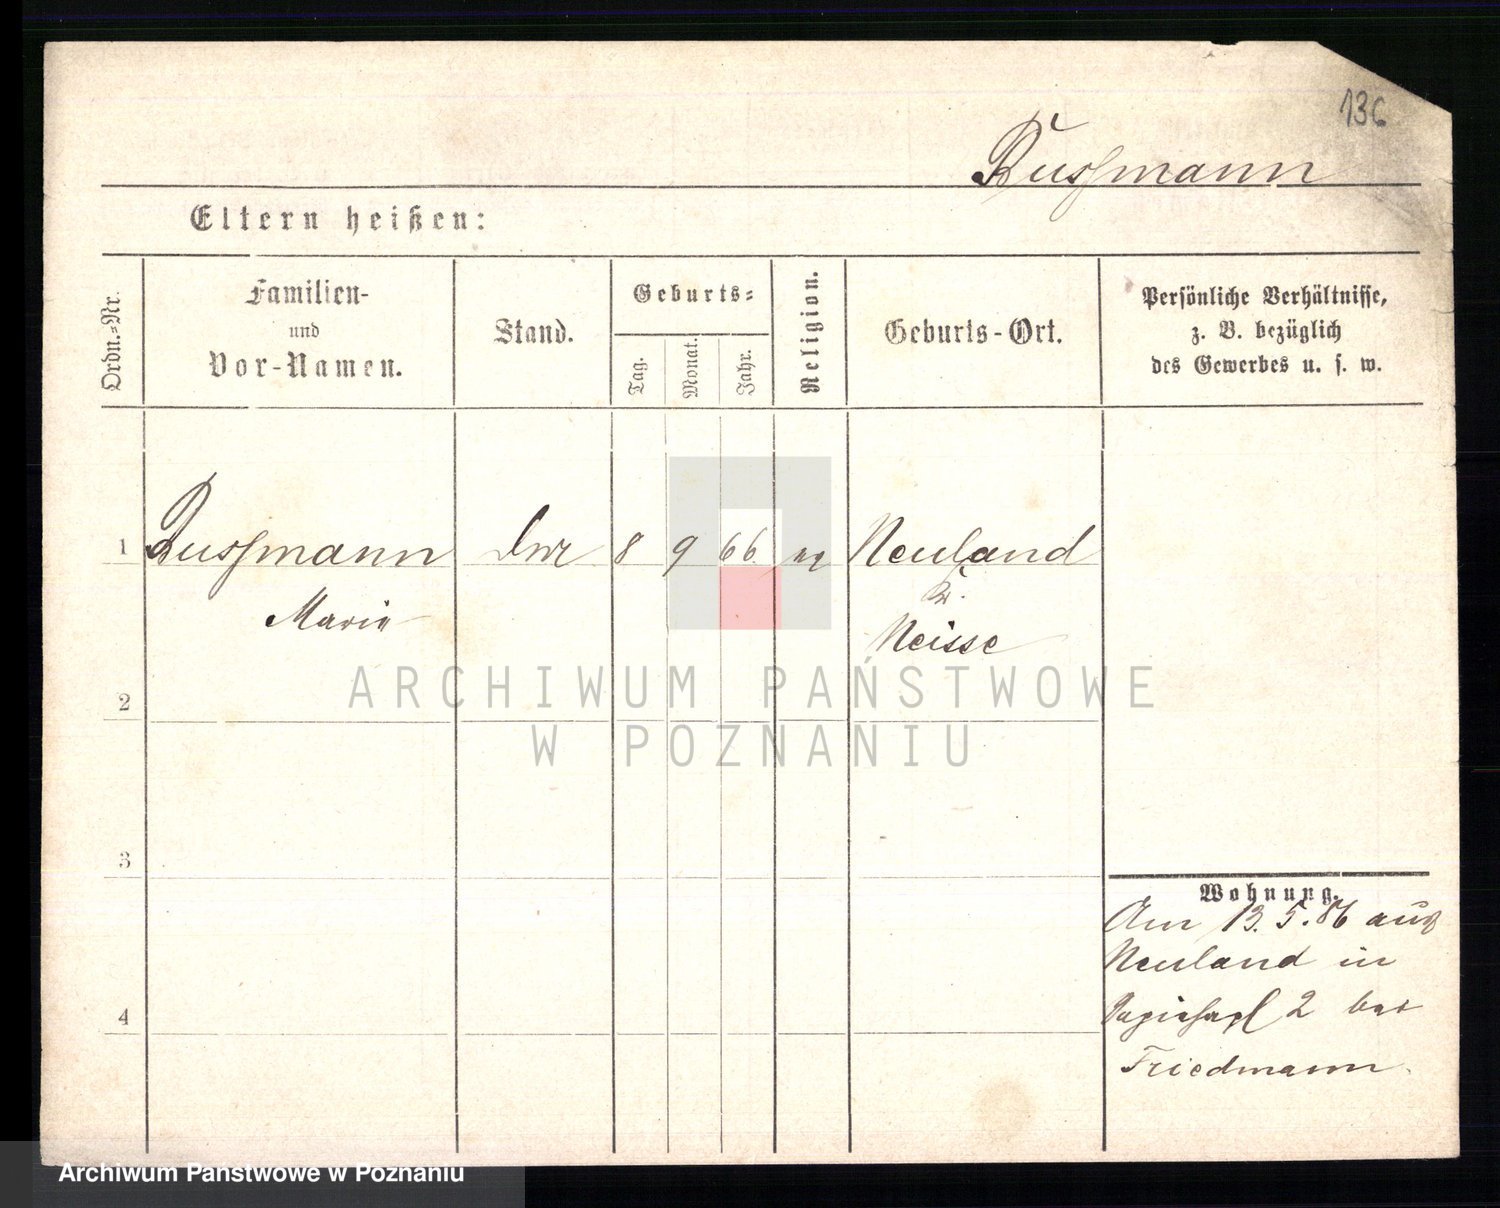 136
Bussmann
Eltern heißen:
Ordn.-Nr.
Familien-
und
Vor-Namen.
Stand.
Geburts-
Tag.
Monat.
Jahr.
Religion.
Geburts-Ort.
Persönliche Verhältnisse,
z. B. bezüglich
des Gewerbes u. s. w.
1 Bussmann 8 9 66 Neuland
Marie Kr.
Neisse
2
3
4
Wohnung.
Am 13.5.86 aus
Neuland in
2 bei
Friedmann.
ARCHIWUM PAŃSTWOWE
W POZNANIU
Archiwum Państwowe w Poznaniu